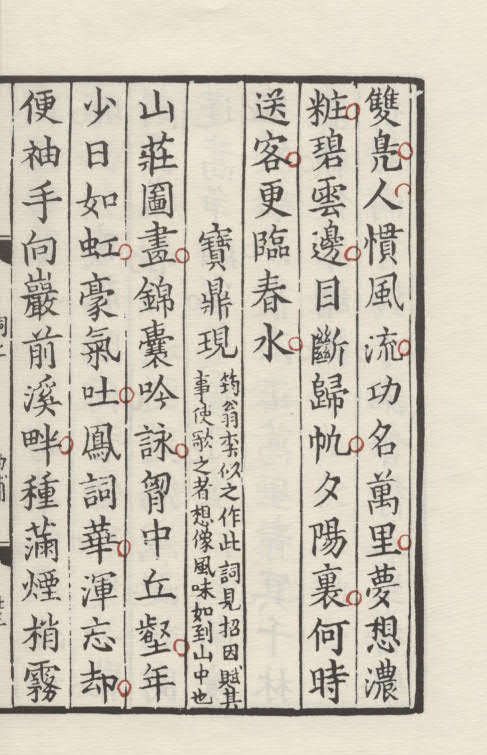 雙鳧人慣風流功名萬里夢想濃
粧碧雲邊目斷歸帆夕陽裏何時
送客更臨春水
寶鼎現
筠翁李似之作此詞見招因賦其
事使歌之者想像風味如到山中也
山莊圖畫錦囊吟詠胷中丘壑年
少日如虹豪氣吐鳳詞華渾忘却
便袖手向巖前溪畔種滿煙梢霧